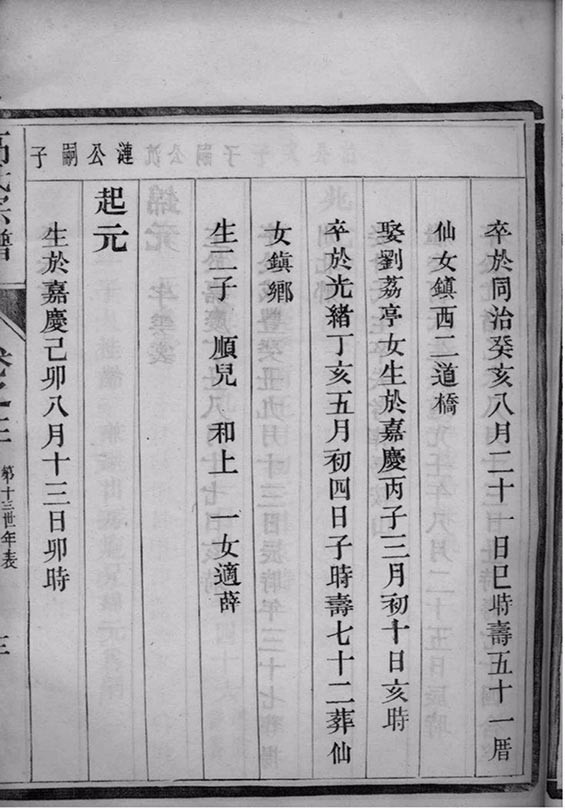 卒於同治癸亥八月二十一日巳時壽五十一厝
仙女鎮西二道橋
娶劉荔亭女生於嘉慶丙子三月初十日亥時
卒於光緒丁亥五月初四日子時壽七十二葬仙
女鎮鄉
生二子 順兒 和上 一女適薛
漣公嗣子
起元
生於嘉慶己卯八月十三日卯時
氏宗譜
第十三世年表